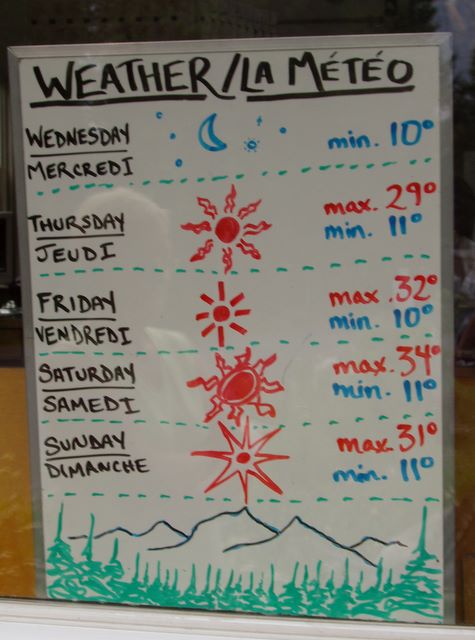 WEATHER/LA MÉTÉO
WEDNESDAY
MERCREDI
min. 10°
THURSDAY
JEUDI
max. 29°
min. 11°
FRIDAY
VENDREDI
max. 32°
min. 10°
SATURDAY
SAMEDI
max. 34°
min. 11°
SUNDAY
DIMANCHE
max. 31°
min. 11°